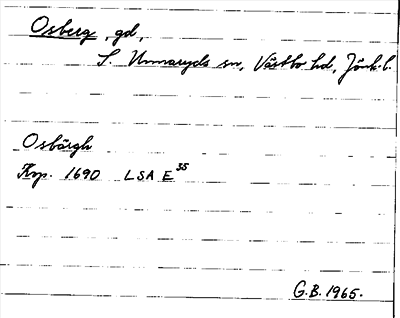 Osberg, gd,
S. Unnaryds sn, Västbo hd, Jönk. l.
Osbärgh
Krp. 1690 LSA E 35
G.B. 1965.